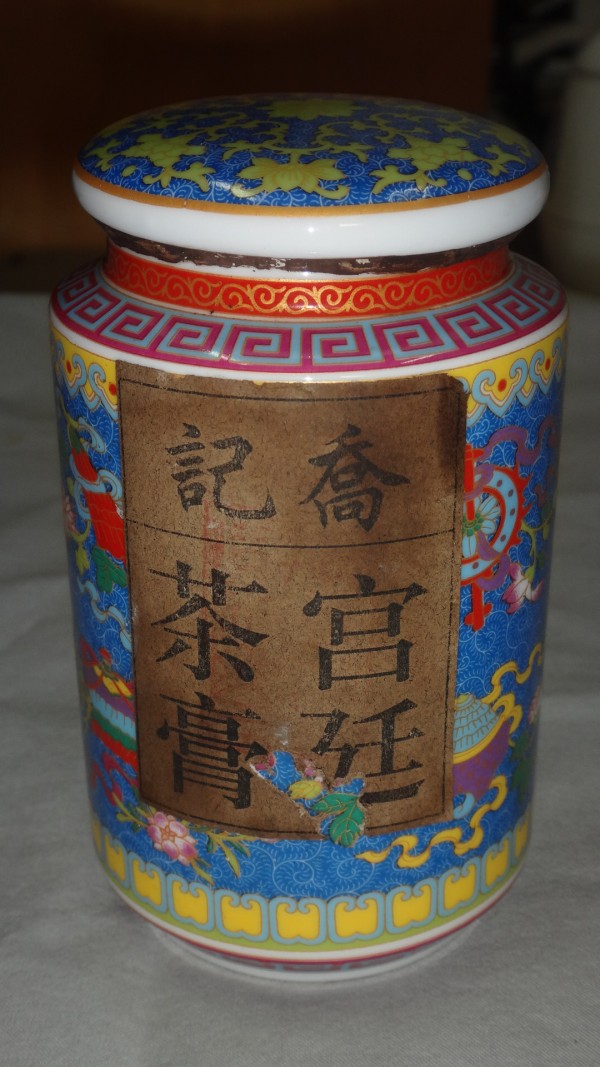 喬記
宫廷
茶膏